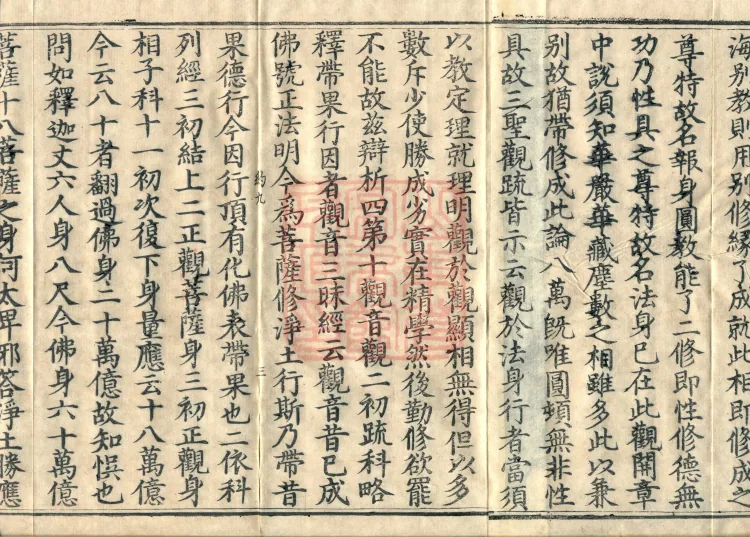 海別教則用別修緣了成就此相即修成之
尊特故名報身圓教能了二修即性修德無
功乃性具之尊特故名法身已在此觀開章
中說須知華嚴華藏塵數之相雖多此以兼
別故猶帶修成此論八萬既唯圓頓無非性
具故三聖觀疏皆示云觀於法身行者當須
以教定理就理明觀於觀顯相無得但以多
數斥少使勝成劣實在精學然後勤修欲罷
不能故茲辯析四第十觀音觀二初疏科略
釋帶果行因者觀音三昧經云觀音昔已成
佛號正法明今為菩薩修淨土行斯乃帶昔
約九 三
果德行今因行頂有化佛表帶果也二依科
列經三初結上二正觀菩薩身三初正觀身
相子科十一初次復下身量應云十八萬億
今云八十者翻過佛身二十萬億故知悞也
問如釋迦丈六人身八尺今佛身六十萬億
菩薩十八菩薩之身何太卑邪答淨土勝應